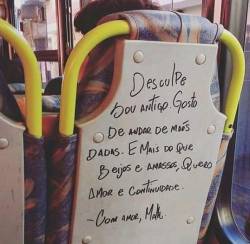 Desculpe
Sou antigo. Gosto
de andar de mãos
dadas. E mais do que
beijos e amassos, quero
amor e continuidade.
- Com amor, Matt.